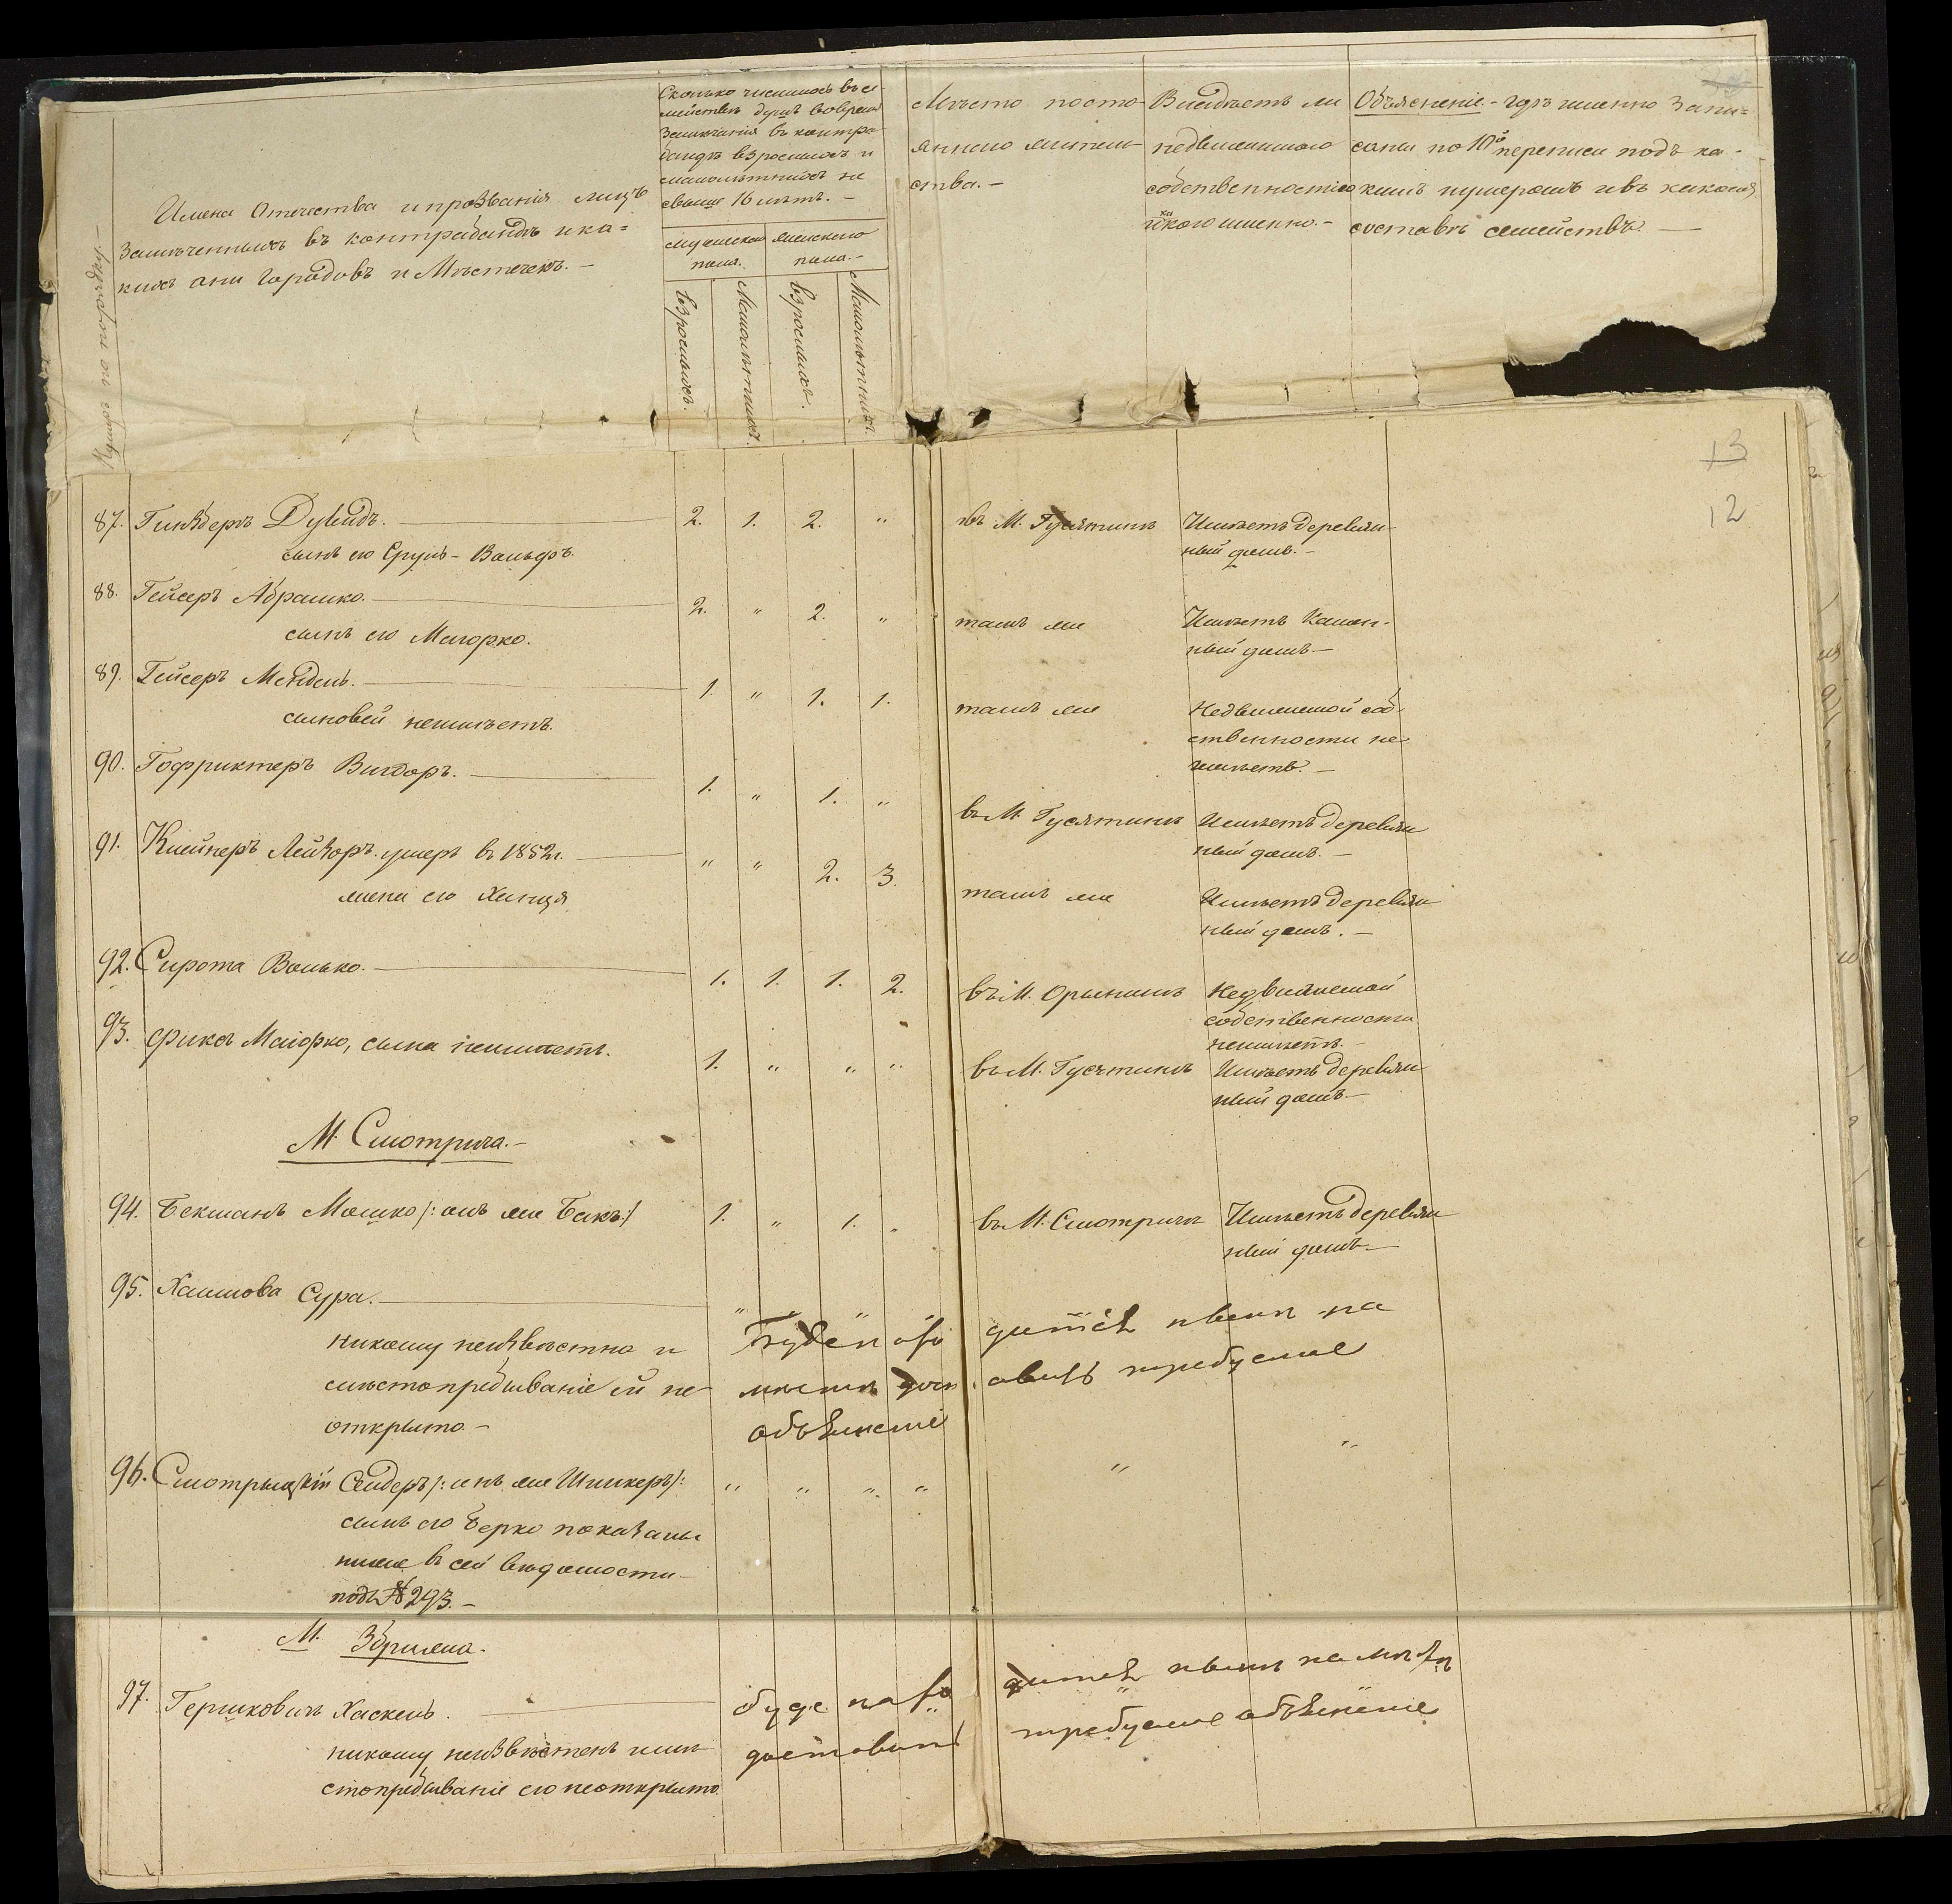 Нумера по порядку.
Имена Отечества и прозвания лицъ
Замеченныхъ въ контрабандѣ и ка=
кихъ они Городовъ и Мѣстечекъ. –
Сколько числилось въ се
мействѣ душъ во время
Замечания въ контра-
бандѣ взрослыхъ и
малолѣтнихъ не
свыше 16 лѣтъ. –
мужескаго пола.
женскаго пола. –
взрослыхъ.
Малолѣтнихъ.
взрослыхъ.
Малолѣтнихъ.
Мѣсто посто-
яннаго жител
ства. –
Владѣетъ ли
недвижимою
собственностию
и какою именно. –
Объяснение – гдѣ именно Запи=
саны по 10й переписи подъ ка-
кимъ нумеромъ и въ какомъ
составѣ семействѣ. –
13
12
87. Гинзберъ Дувидъ. 2. 1. 2. " въ М. Гусятинѣ Имѣетъ деревян-
сынъ его Сруль – Вольфъ. ный домъ. –
88. Гейсеръ Абрамко. 2. " 2. " тамъ же Имѣетъ Камен-
сынъ его Маiорко. ный домъ –
89. Гейсеръ Мендель. 1. " 1. 1. тамъ же Недвижимой соб-
сыновей неимѣетъ. ственности не
имѣетъ. –
90. Гофриктеръ Вигдоръ. 1. " 1. " въ М. Гусятинѣ Имѣетъ деревян
ный домъ. –
91. Клейнеръ Лейзоръ умеръ въ 1852 г. " " 2. 3. тамъ же Имѣетъ деревян
жена его Хинця ный домъ. –
92. Сирота Волько. 1. 1. 1. 2. въ М. Орынинѣ Недвижимой
собственности
неимѣетъ. –
93. Фиксъ Маiорко, сына неимѣетъ. 1. " " " въ М. Гусятинѣ Имѣетъ деревян
ный домъ. –
М. Смотрича. –
94. Бекманъ Мошко /: онъ же Бакъ :/ 1. " 1. " въ М. Смотричѣ Имѣетъ деревян
ный домъ –
95. Хаимова Сура. " " " "
никому неизвѣстна и
мѣстопребывание ей не
открыто. –
требуемое
96. Смотрыцкiй Сендеръ /: онъ же Шинкеръ /: " " " " " "
сынъ его Берко показаны
ниже въ сей вѣдомости
подъ № 293. –
М. Збрижа.
97. Гершковичъ Хаскель.
никому неизвѣстенъ и мѣ
стопребыванiе его неоткрыто.
требуемое объясненiе